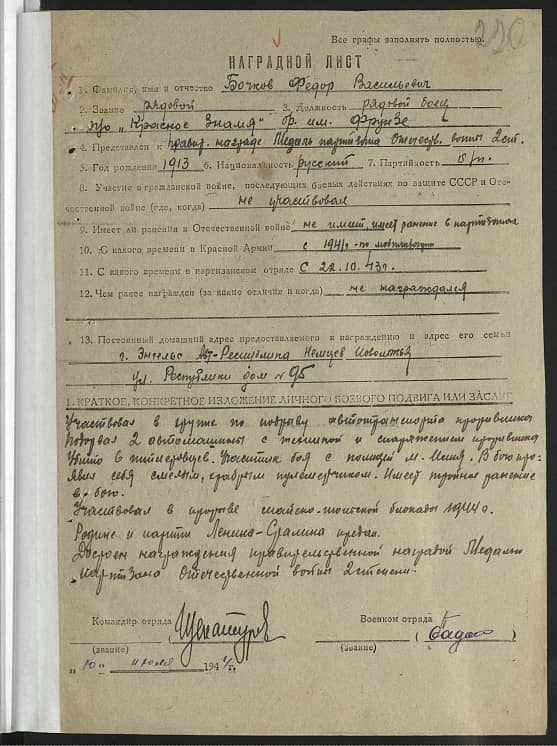 Все графы заполнять полностью.
220
НАГРАДНОЙ ЛИСТ
1. Фамилия, имя и отчество Бочков Фёдор Васильевич
2. Звание рядовой 3. Должность рядовой боец
п/о „Красное Знамя" бр. им. Фрунзе
4. Представлен к правит. награде Медаль партизана Отечеств. войны 2 ст.
5. Год рождения 1913 6. Национальность русский 7. Партийность б/п.
8. Участие в гражданской войне, последующих боевых действиях по защите СССР и Оте-
чественной войне (где, когда) не участвовал
9. Имеет ли ранения в Отечественной войне не имеет, имеет ранение в
10. С какого времени в Красной Армии с 1941 г. по мобилизации
11. С какого времени в партизанском отряде с 22.10.43г.
12. Чем ранее награжден (за какие отличия и когда) не награждался
13. Постоянный домашний адрес предоставляемого к награждению и адрес его семьи
г. Энгельс Авт-Республика Немцев Поволжья
ул. Республики дом № 95
1. КРАТКОЕ, КОНКРЕТНОЕ ИЗЛОЖЕНИЕ ЛИЧНОГО БОЕВОГО ПОДВИГА ИЛИ ЗАСЛУГ
Участвовал в группе по подрыву автотранспорта противника
Подорвал 2 автомашины с техникой и снаряжением противника
Убито 6 гитлеровцев. Участник боя с полицией м. В бою про-
явил себя смелым, храбрым пулеметчиком. Имеет ранение
в бою.
Участвовал в прорыве майско-июньской блокады 1944 г.
Родине и партии Ленина-Сталина предан.
Достоин награждения правительственной наградой Медалью
Партизана Отечественной войны 2 степени.
Командир отряда
Военком отряда
(звание)
(звание)
„10" июля 1944 г.